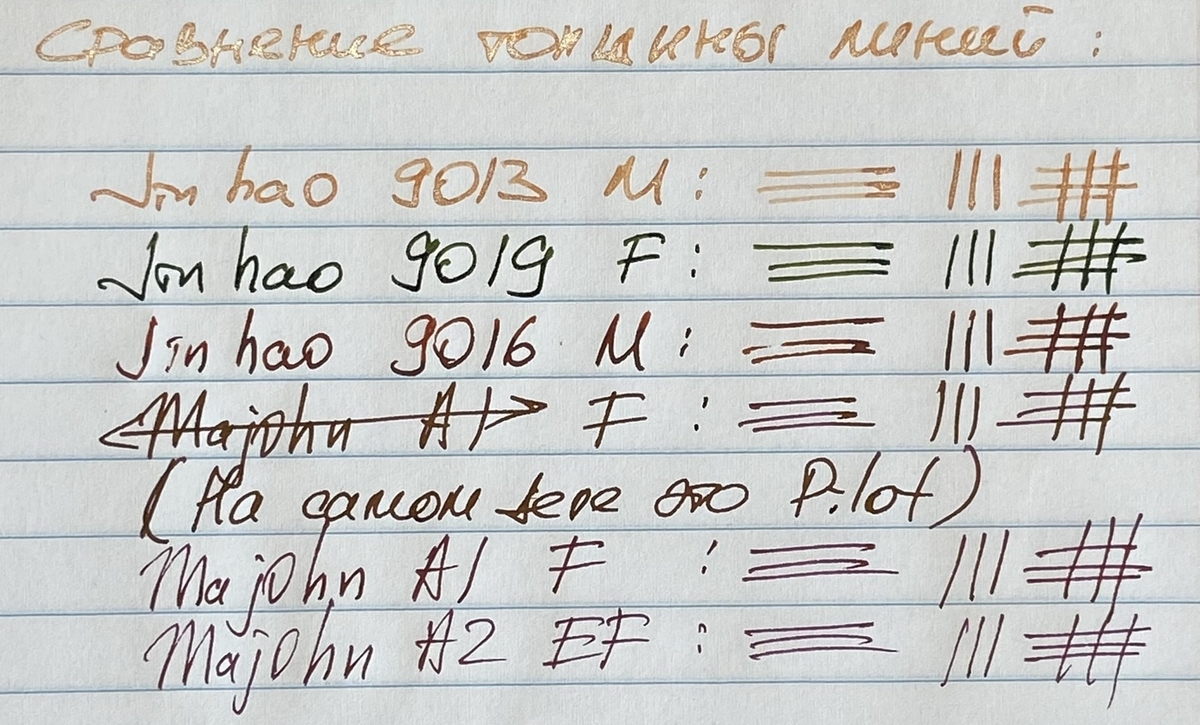 Сравнение толщины линий :
Jinhao 9013 M :
Jinhao 9019 F :
Jinhao 9016 M :
Majohn A1 F :
(На самом деле это Pilot)
Majohn A1 F :
Majohn A2 EF :